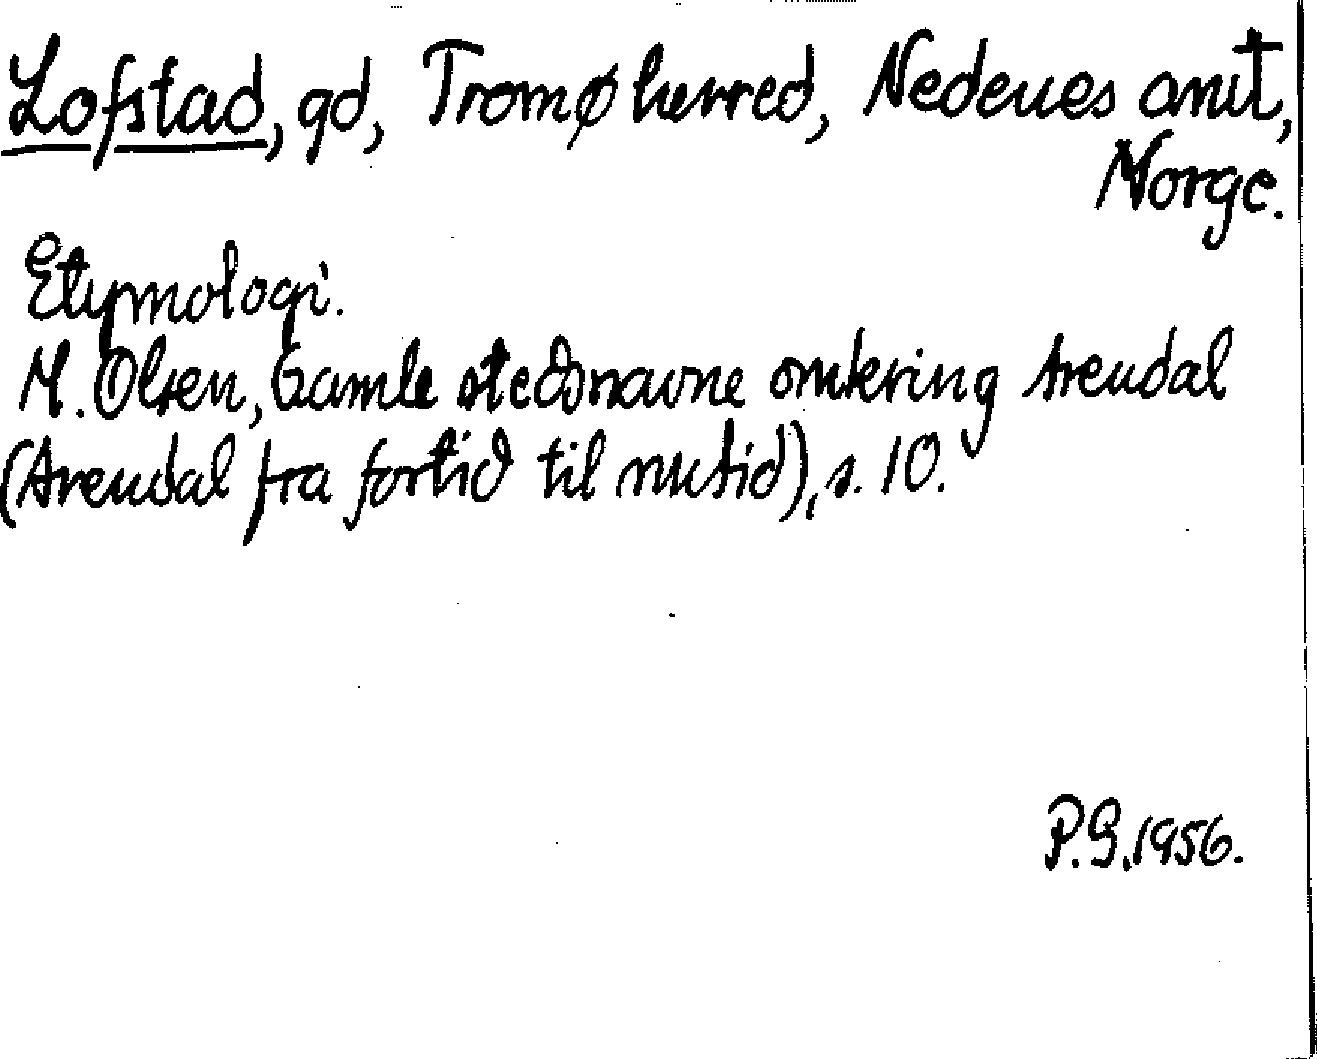 Lofstad, gd, Tromø herred, Nedenes amt,
Norge.
Etymologi.
M. Olsen, Gamle stedsnavne omkring Arendal
(Arendal fra fortid til nutid), s. 10.
P.G. 1956.